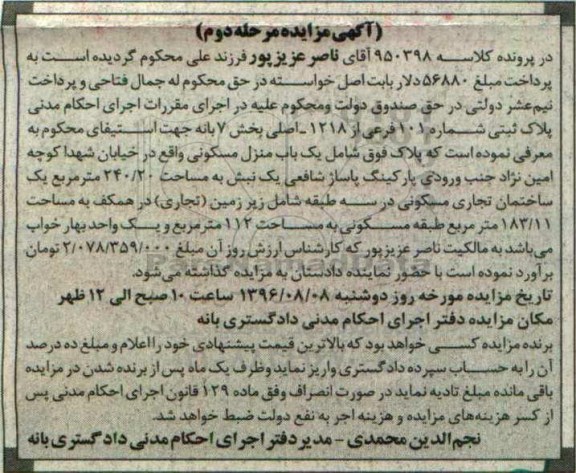 (آگهی مزایده مرحله دوم)
در پرونده کلاسه ۹۵۰۳۹۸ آقای ناصر عزیزپور فرزند علی محکوم گردیده است به
پرداخت مبلغ ۵۶۸۸۰ دلار بابت اصل خواسته در حق محکوم له جمال فتاحی و پرداخت
نیم‌عشر دولتی در حق صندوق دولت ومحکوم علیه در اجرای مقررات اجرای احکام مدنی
پلاک ثبتی شماره ۱۰۱ فرعی از ۱۲۱۸ ـ اصلی بخش ۷ بانه جهت استیفای محکوم به
معرفی نموده است که پلاک فوق شامل یک باب منزل مسکونی واقع در خیابان شهدا کوچه
امین نژاد جنب ورودی پارکینگ پاساژ شافعی یک نبش به مساحت ۲۴۰/۲۰ مترمربع یک
ساختمان تجاری مسکونی در سه طبقه شامل زیر زمین (تجاری) در همکف به مساحت
۱۸۳/۱۱ متر مربع طبقه مسکونی به مساحت ۱۱۲ مترمربع و یک واحد بهار خواب
می‌باشد به مالکیت ناصر عزیزپور که کارشناس ارزش روز آن مبلغ ۲/۰۷۸/۳۵۹/۰۰۰ تومان
برآورد نموده است با حضور نماینده دادستان به مزایده گذاشته می‌شود.
تاریخ مزایده مورخه روز دوشنبه ۱۳۹۶/۰۸/۰۸ ساعت ۱۰ صبح الی ۱۲ ظهر
مکان مزایده دفتر اجرای احکام مدنی دادگستری بانه
برنده مزایده کسی خواهد بود که بالاترین قیمت پیشنهادی خود را اعلام و مبلغ ده درصد
آن را به حساب سپرده دادگستری واریز نماید وظرف یک ماه پس از برنده شدن در مزایده
باقی مانده مبلغ تادیه نماید در صورت انصراف وفق ماده ۱۲۹ قانون اجرای احکام مدنی پس
از کسر هزینه‌های مزایده و هزینه اجر به نفع دولت ضبط خواهد شد.
نجم‌الدین محمدی - مدیر دفتر اجرای احکام مدنی دادگستری بانه